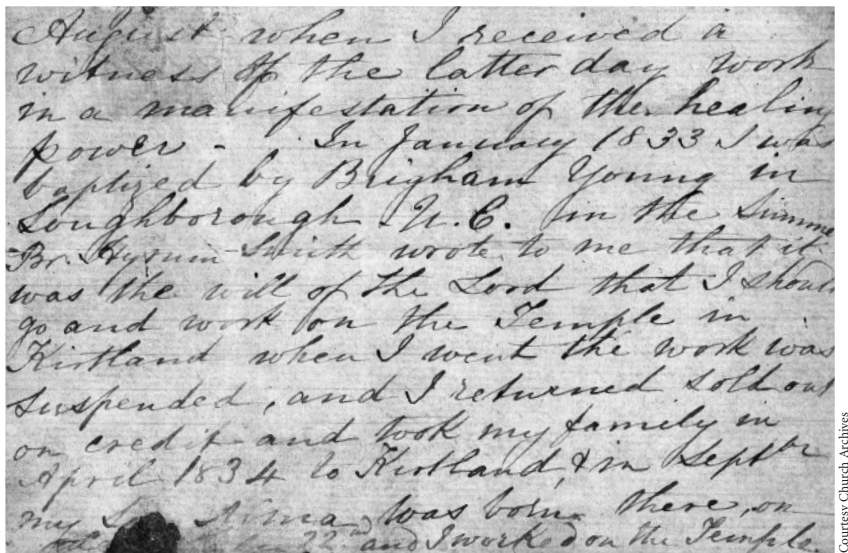 August when I received a
witness of the latter day work
in a manifestation of the healing
power - In January 1833 I was
baptized by Brigham Young in
Loughborough U.C. in the Summe
Br. Hyrum Smith wrote to me that it
was the will of the Lord that I should
go and work on the Temple in
Kirtland when I went the work was
suspended, and I returned sold out
on credit and took my family in
April 1834 to Kirtland, & in Septbr
my Alma was born there, on
22nd and I worked on the Temple
Courtesy Church Archives